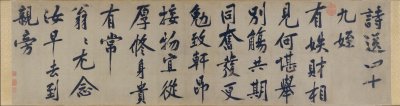 詩送四十
九姪
有姪財相
見何堪舉
別觴共期
同奮發更
勉致軒昂
接物宜從
厚修身貴
有常
翁翁尤念
汝早去到
親旁